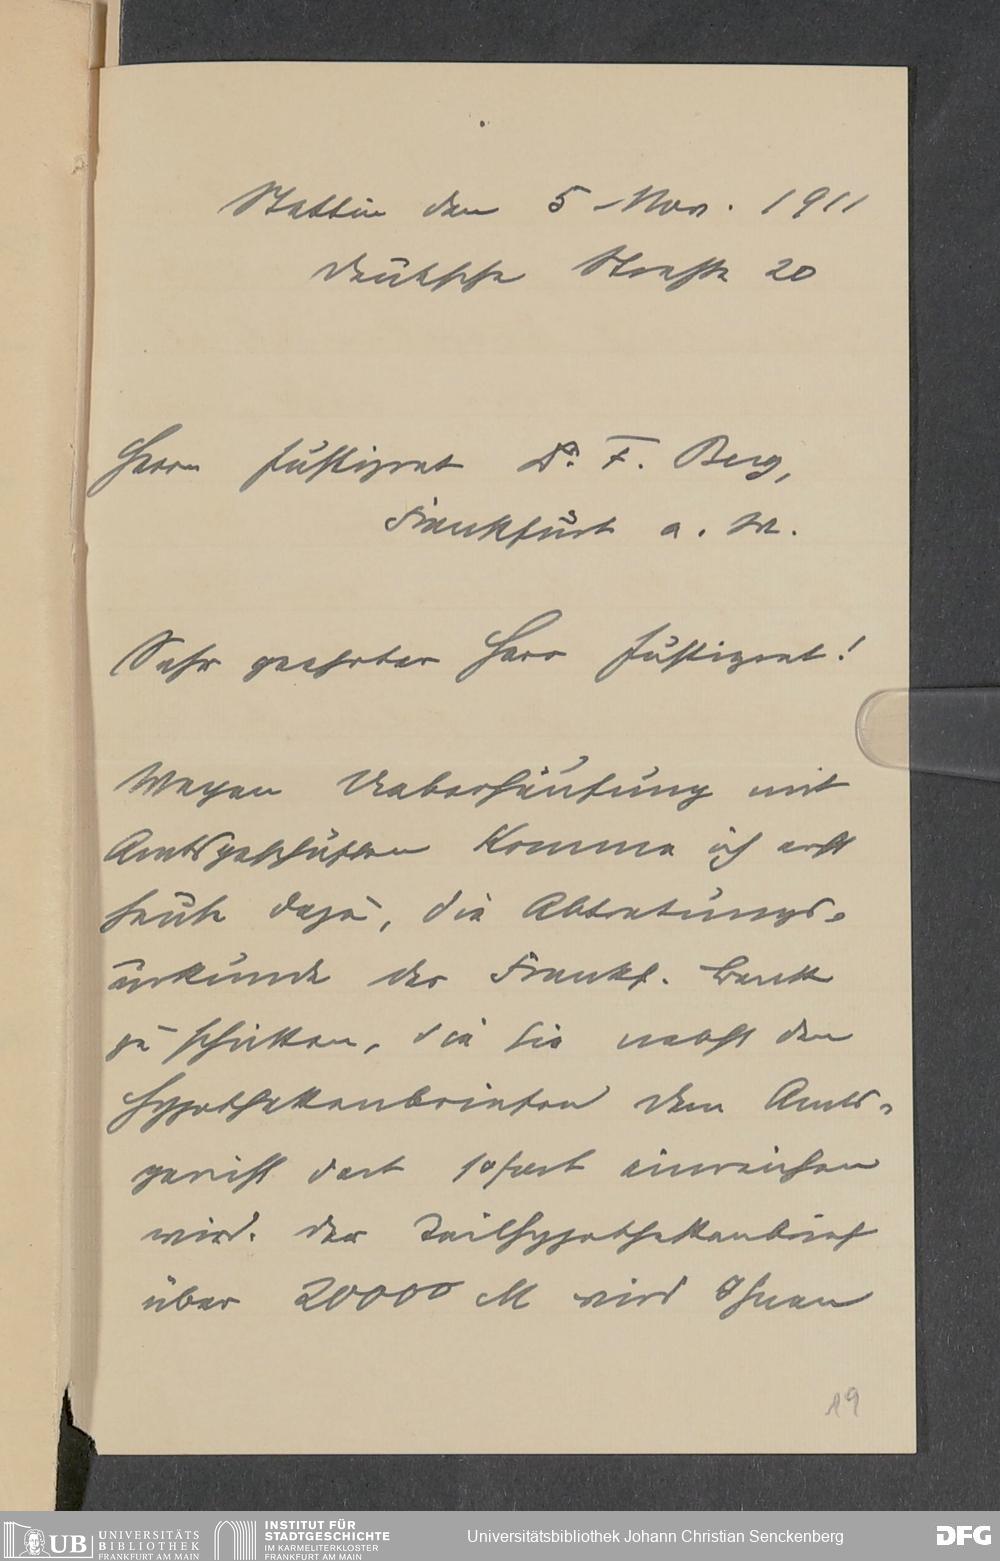 Stettin den 5 Nov. 1911
Deutsche Straße 20
Herrn Justizrat Dr. F. Berg,
Frankfurt a. M.
Sehr geehrter Herr Justizrat!
Wegen Ueberhäufung mit
Amtsgeschäften komme ich erst
heute dazu, die Abtretungs-
urkunde der Frankf. Bank
zu schicken, die sie nebst den
Hypothekenbriefen dem Amts-
gericht dort sofort einreichen
wird. Der Teilhypothekenbrief
über 20000 M wird Ihnen
19
UB UNIVERSITÄTS
BIBLIOTHEK
FRANKFURT AM MAIN
INSTITUT FÜR
STADTGESCHICHTE
IM KARMELITERKLOSTER
FRANKFURT AM MAIN
Universitätsbibliothek Johann Christian Senckenberg
DFG